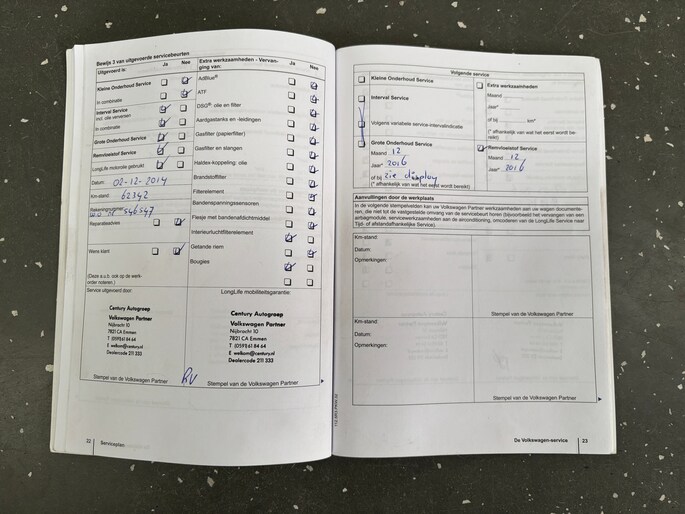 Bewijs 3 van uitgevoerde servicebeurten
Uitgevoerd is: Ja Nee
Kleine Onderhoud Service
In combinatie
Interval Service
Incl. olie verversen
In combinatie
Grote Onderhoud Service
Remvloeistof Service
LongLife motorolie gebruikt
Datum: 02-12-2014
Km-stand: 62342
Rekeningnummer:
Reparatieadvies
Wens klant
(Deze a.u.b. ook op de werk-
order noteren.)
Extra werkzaamheden - Vervan-
ging van: Ja Nee
AdBlue®
ATF
DSG®: olie en filter
Aardgastanks en -leidingen
Gasfilter (papierfilter)
Gasfilter en slangen
Haldex-koppeling: olie
Brandstoffilter
Filterelement
Bandenspanningssensoren
Flesje met bandenafdichtmiddel
Interieurluchtfilterelement
Getande riem
Bougies
Service uitgevoerd door:
Century Autogroep
Volkswagen Partner
Nijbracht 10
7821 CA Emmen
T (0591) 61 84 64
E welkom@century.nl
Dealercode 211 333
Stempel van de Volkswagen Partner
LongLife mobiliteitsgarantie:
Century Autogroep
Volkswagen Partner
Nijbracht 10
7821 CA Emmen
T (0591) 61 84 64
E welkom@century.nl
Dealercode 211 333
Stempel van de Volkswagen Partner
22 Serviceplan
Volgende service
Kleine Onderhoud Service
Interval Service
Volgens variabele service-intervalindicatie
Grote Onderhoud Service
Maand 12
Jaar* 2016
of bij zie display
(* afhankelijk van wat het eerst wordt bereikt)
Extra werkzaamheden
Maand
Jaar*
of bij km*
(* afhankelijk van wat het eerst wordt be-
reikt)
Remvloeistof Service
Maand 12
Jaar 2016
Aanvullingen door de werkplaats
In de volgende stempelvelden kan uw Volkswagen Partner werkzaamheden aan uw wagen documente-
ren, die niet tot de vastgestelde omvang van de servicebeurt horen (bijvoorbeeld het vervangen van
airbagmodule, servicewerkzaamheden aan de airconditioning, omcoderen van de LongLife Service naar
Tijd- of afstandsafhankelijke Service).
Km-stand:
Datum:
Opmerkingen:
Stempel van de Volkswagen Partner
Km-stand:
Datum:
Opmerkingen:
Stempel van de Volkswagen Partner
De Volkswagen-service 23